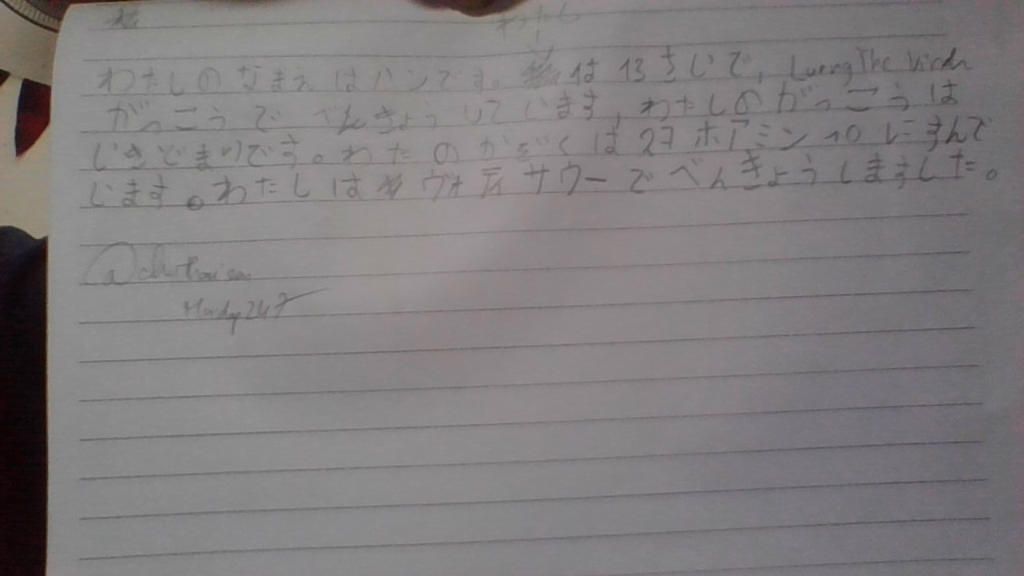 わたし
わたしのなまえはハンです。は13さいで, Luong The Vinh
がっこうでべんきょうしています, わたしのがっこうは
いきどまりです。わたのかぞくは27ホアミン10にすんで
います。わたしはヴォティサウーでべんきょうしますした。